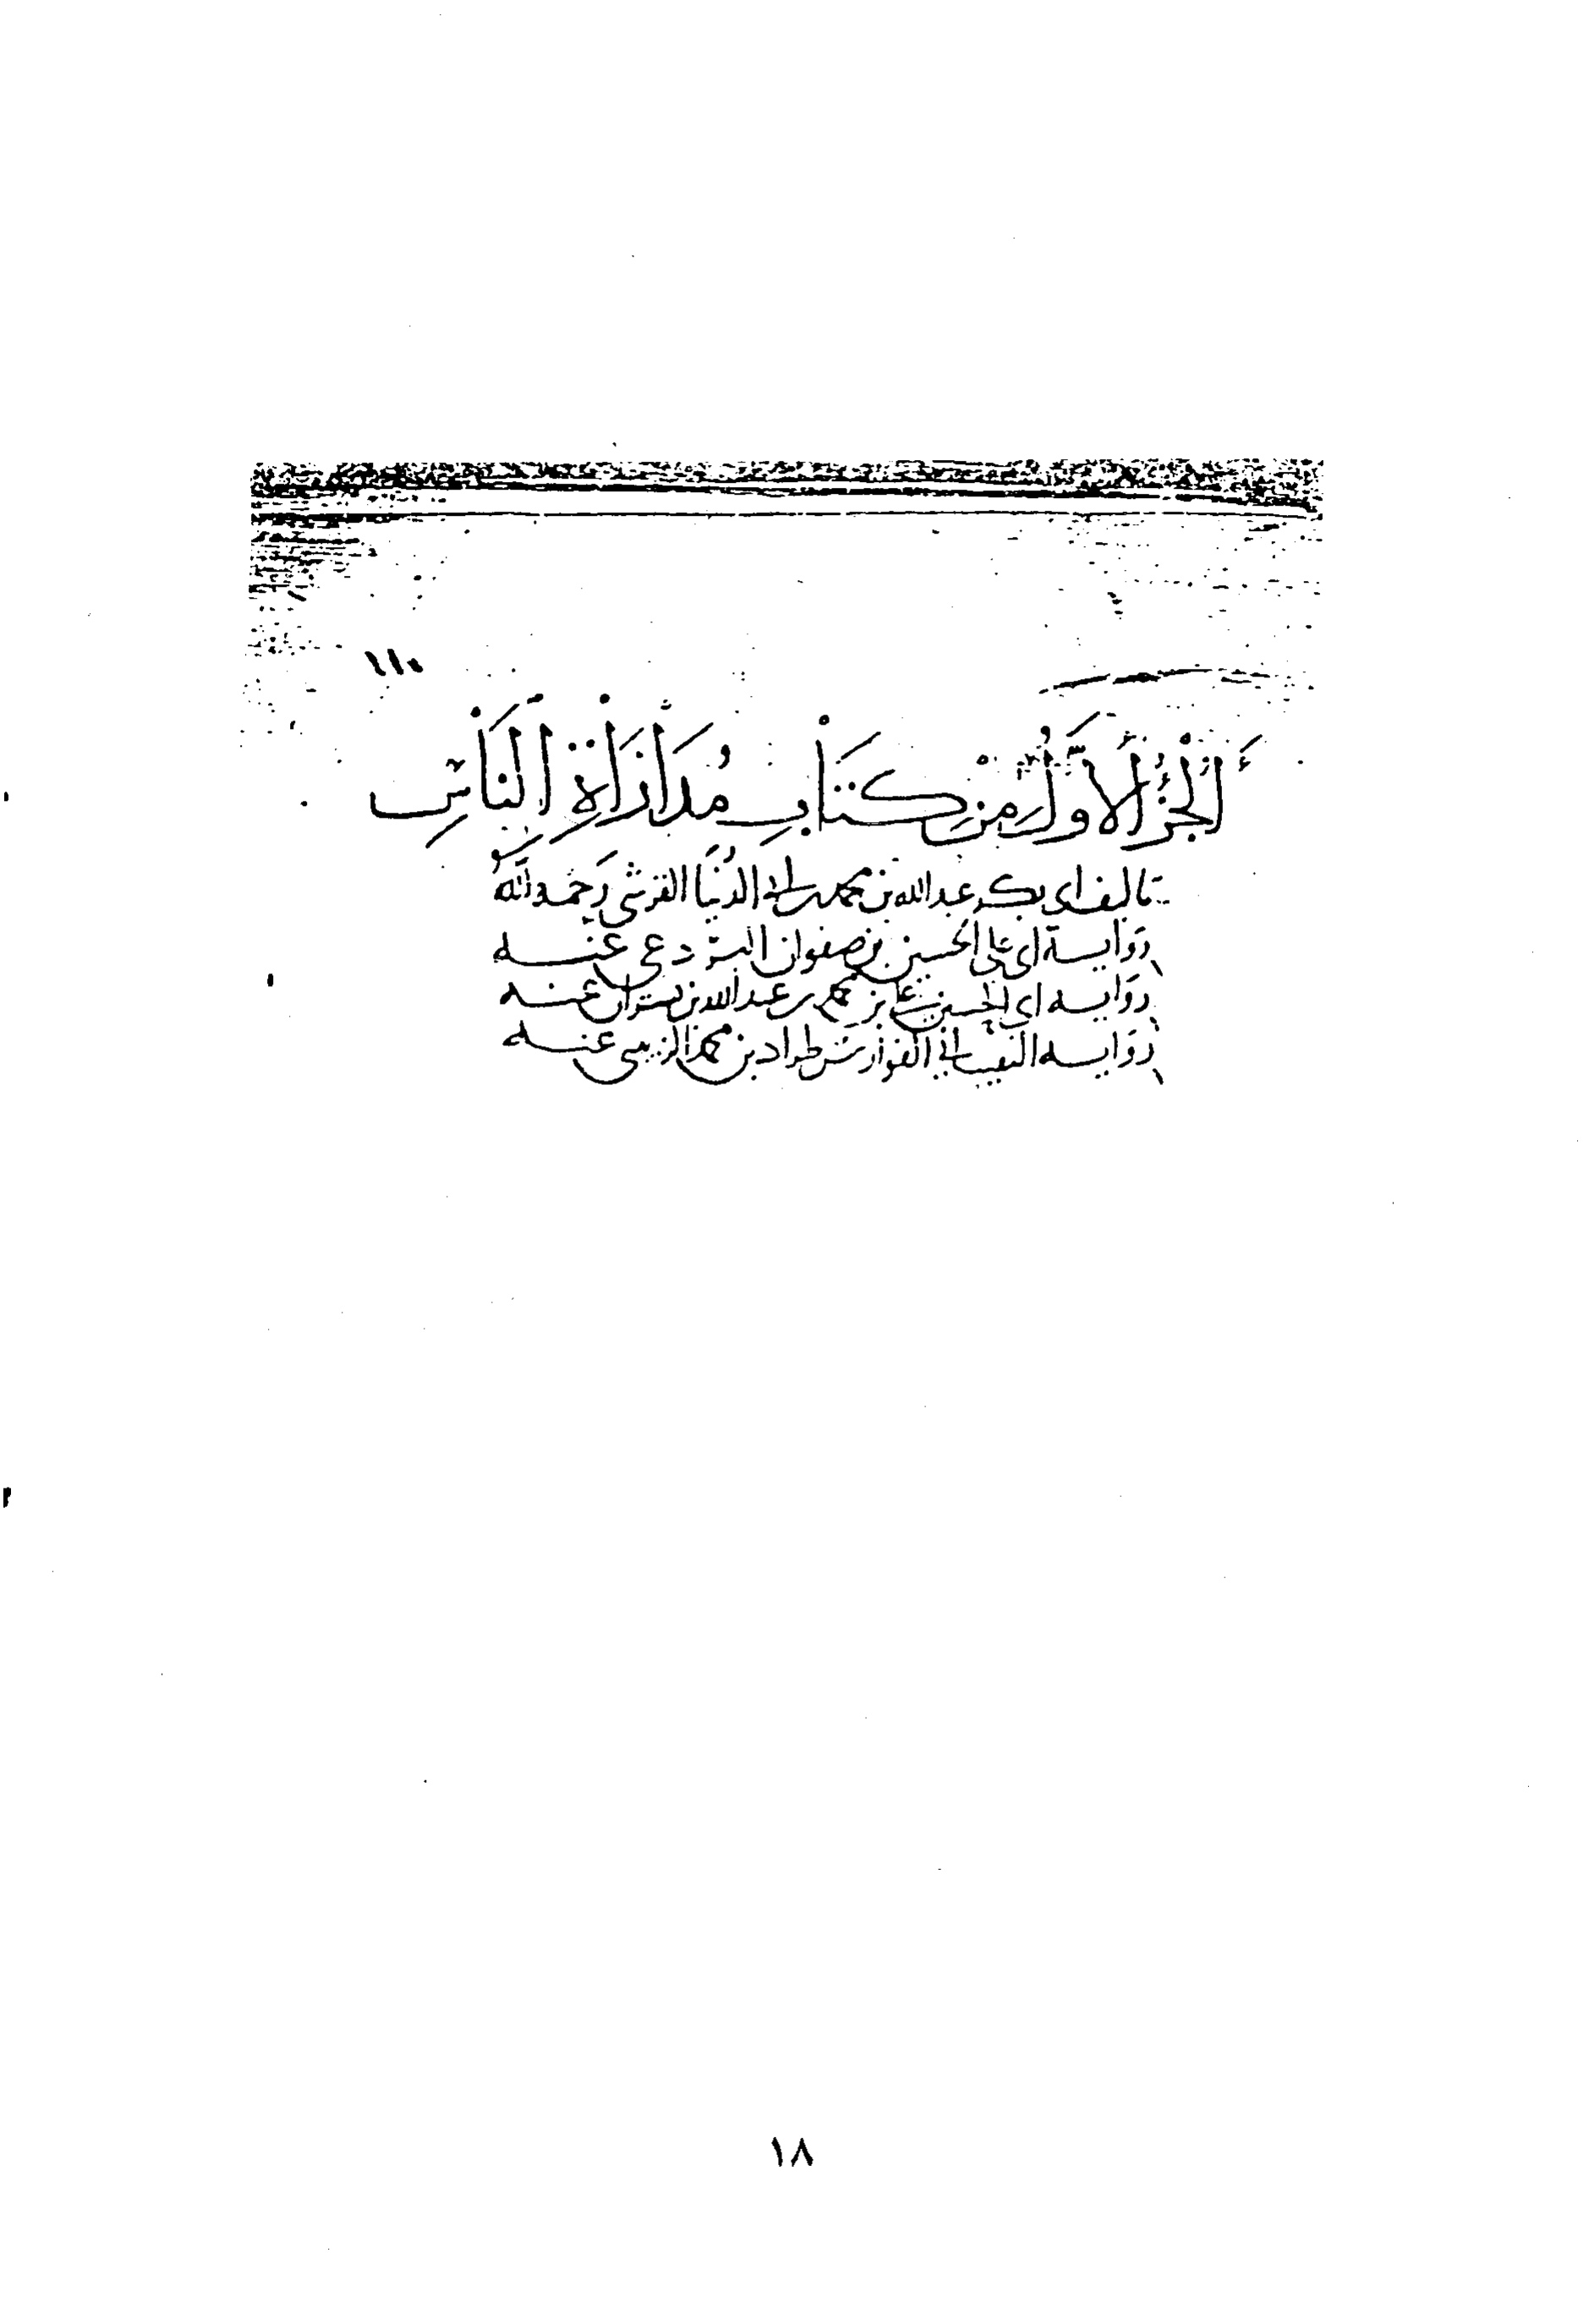 ١١٠
اَلْجُزْءُ الْأَوَّلُ مِنْ كِتَابِ مُدَارَاةِ النَّاسِ
تاليف ابي بكر عبدالله بن محمد بن ابي الدنيا القرشي رحمه الله
رواية ابي علي الحسين بن صفوان البردعي عنه
رواية ابي الحسين علي بن محمد بن عبدالله بن بشران عنه
رواية النقيب ابي الفوارس طراد بن محمد الزينبي عنه
١٨